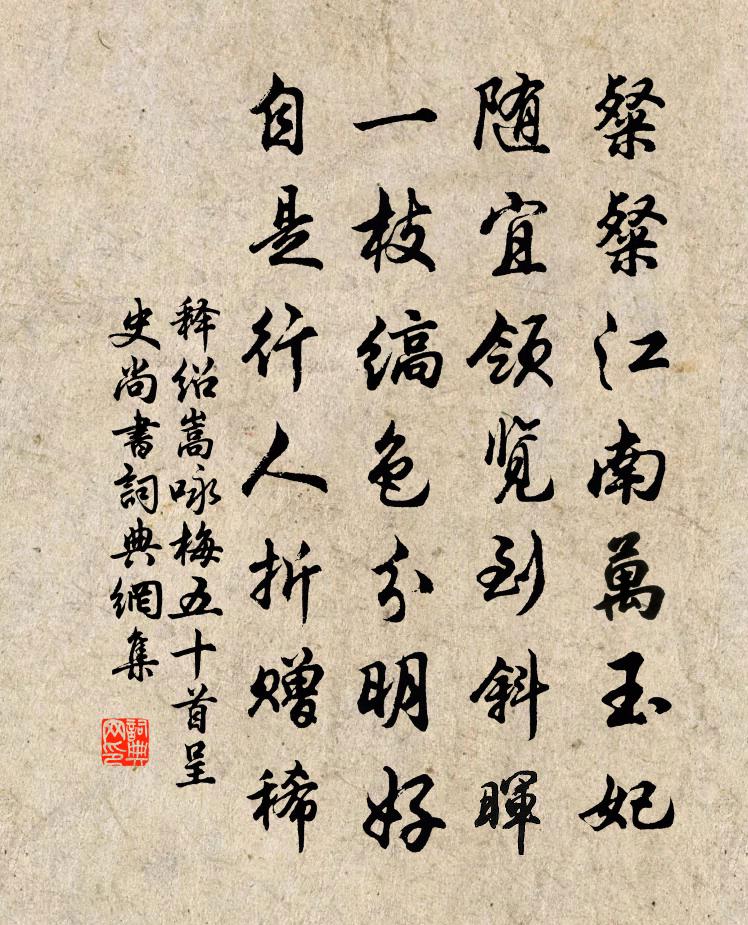 粲粲江南萬玉妃
随宜領覧到斜暉
一枝縞色分明好
自是行人折贈稀
释紹嵩咏梅五十首呈
史尚書詞典網集
詞典网印